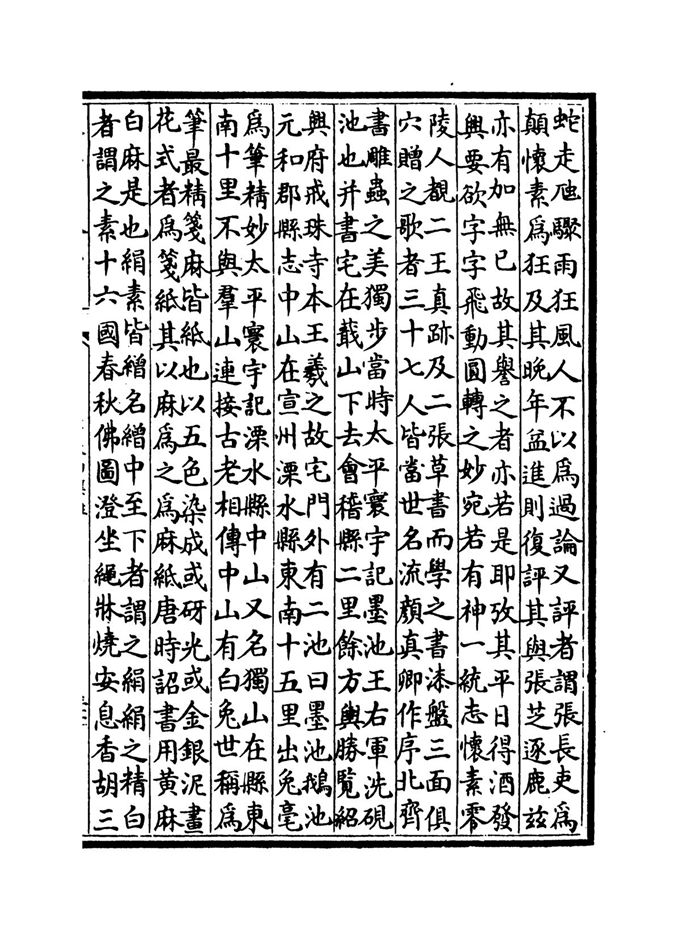 蛇走虺驟雨狂風人不以為過論又評者謂張長吏為
顛懷素為狂及其晚年益進則復評其與張芝逐鹿茲
亦有加無已故其譽之者亦若是耶攷其平日得酒發
興要欲字字飛動圓轉之妙宛若有神一統志懷素零
陵人觀二王真跡及二張草書而學之書漆盤三面俱
穴贈之歌者三十七人皆當世名流顏真卿作序北齊
書雕蟲之美獨步當時太平寰宇記墨池王右軍洗硯
池也并書宅在蕺山下去會稽縣二里餘方輿勝覽紹
興府戒珠寺本王羲之故宅門外有二池曰墨池鵝池
元和郡縣志中山在宣州溧水縣東南十五里出兔毫
為筆精妙太平寰宇記溧水縣中山又名獨山在縣東
南十里不與羣山連接古老相傳中山有白兔世稱為
筆最精箋麻皆紙也以五色染成或砑光或金銀泥畫
花式者為箋紙其以麻為之為麻紙唐時詔書用黃麻
白麻是也絹素皆繒名繒中至下者謂之絹絹之精白
者謂之素十六國春秋佛圖澄坐繩牀燒安息香胡三